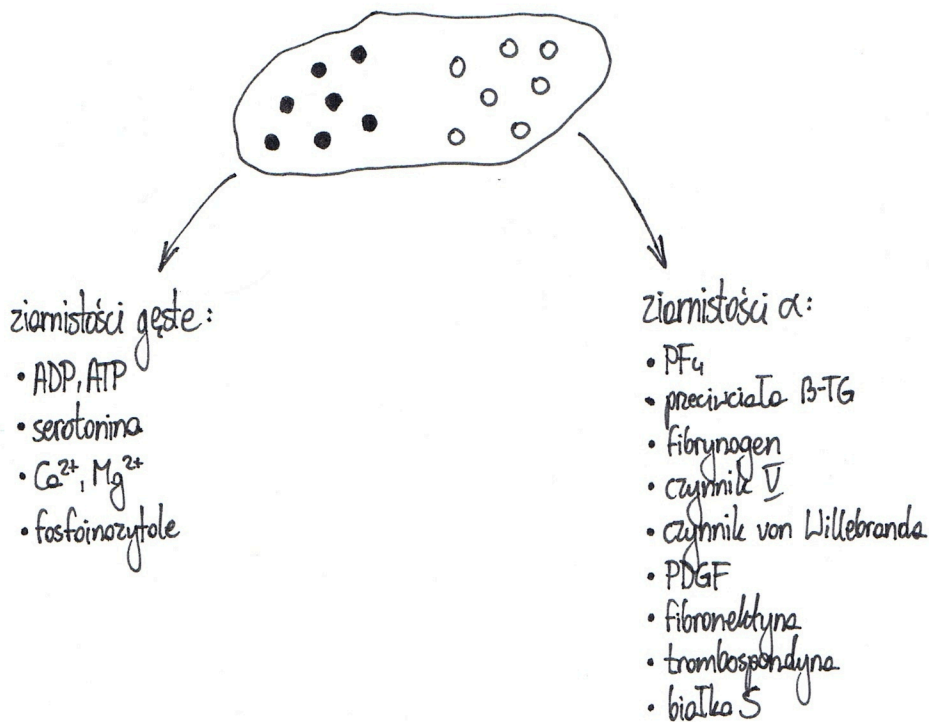 ziarnistości gęste:
• ADP, ATP
• serotonina
• Ca²⁺, Mg²⁺
• fosfoinozytole
ziarnistości α:
• PF₄
• przeciwciała β-TG
• fibrynogen
• czynnik V
• czynnik von Willebranda
• PDGF
• fibronektyna
• trombospondyna
• białko S